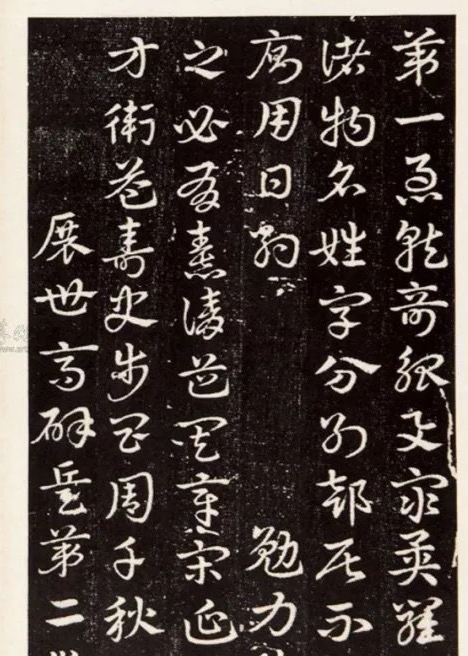 第一急就奇觚與眾異羅
諸物名姓字分別部居不
廁用日約勉力
之必有憙請道其章宋延
方衛益壽史步昌周千秋
展世高辟兵第二